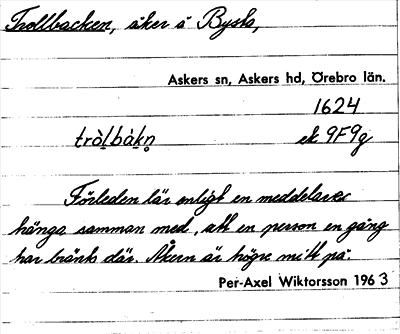 Trollbacken, åker å Bysta,
Askers sn, Askers hd, Örebro län.
1624
tròl̥bàkn̥ ek 9F9g
Förleden lär enligt en meddelare
hänga samman med, att en person en gång
har bränts där. Åkern är högre mitt på.
Per-Axel Wiktorsson 1963